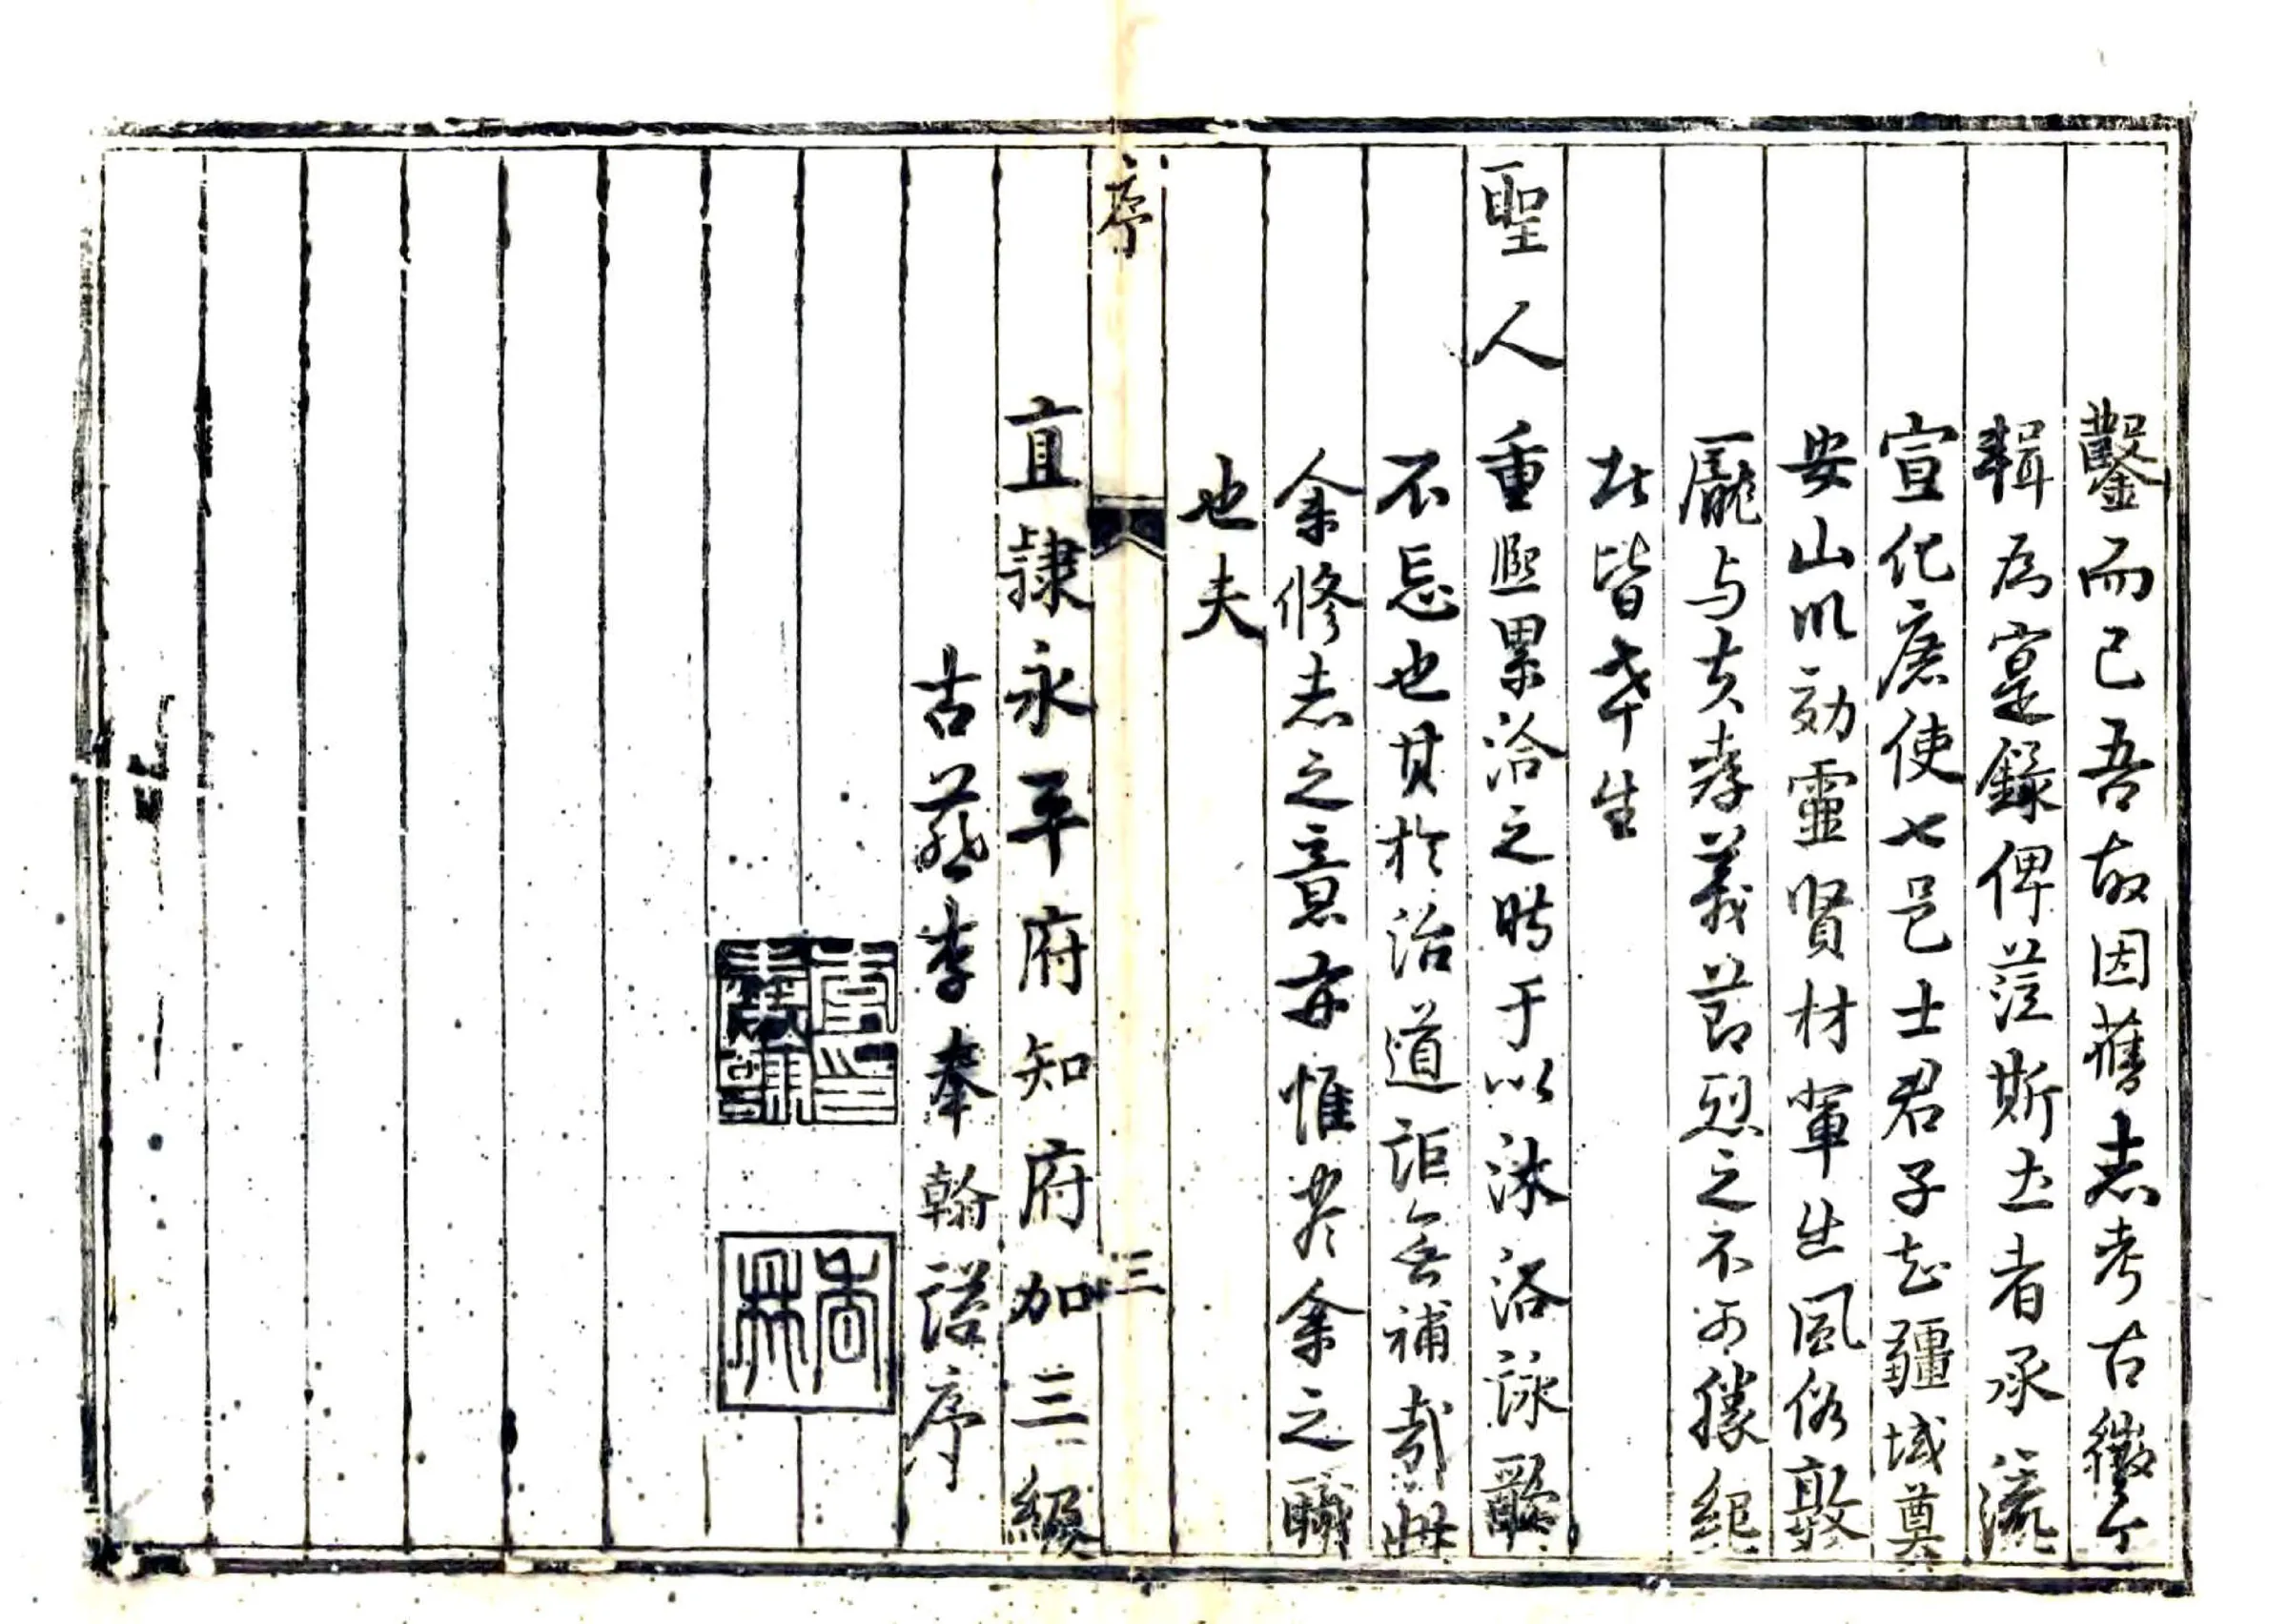 鑿而已吾故因舊志考古徵今
輯為寔錄俾蒞斯土者承流
宣化庶使七邑士君子知疆域奠
安山川効靈賢材軰生風俗敦
龐与夫孝義節烈之不可勝紀
者皆幸生
聖人重熙累洽之時于以沐浴詠歌
不忘也其於治道詎無補哉此
余修志之意亦惟盡余之職
也夫
序
三
直隷永平府知府加三級
古燕李奉翰謹序
李奉翰印
香林